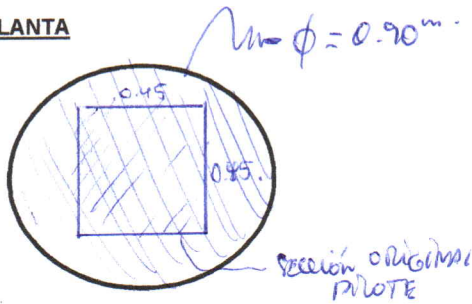 LANTA
φ = 0.90 m.
0.45
0.45.
SECCIÓN ORIGINAL
PILOTE